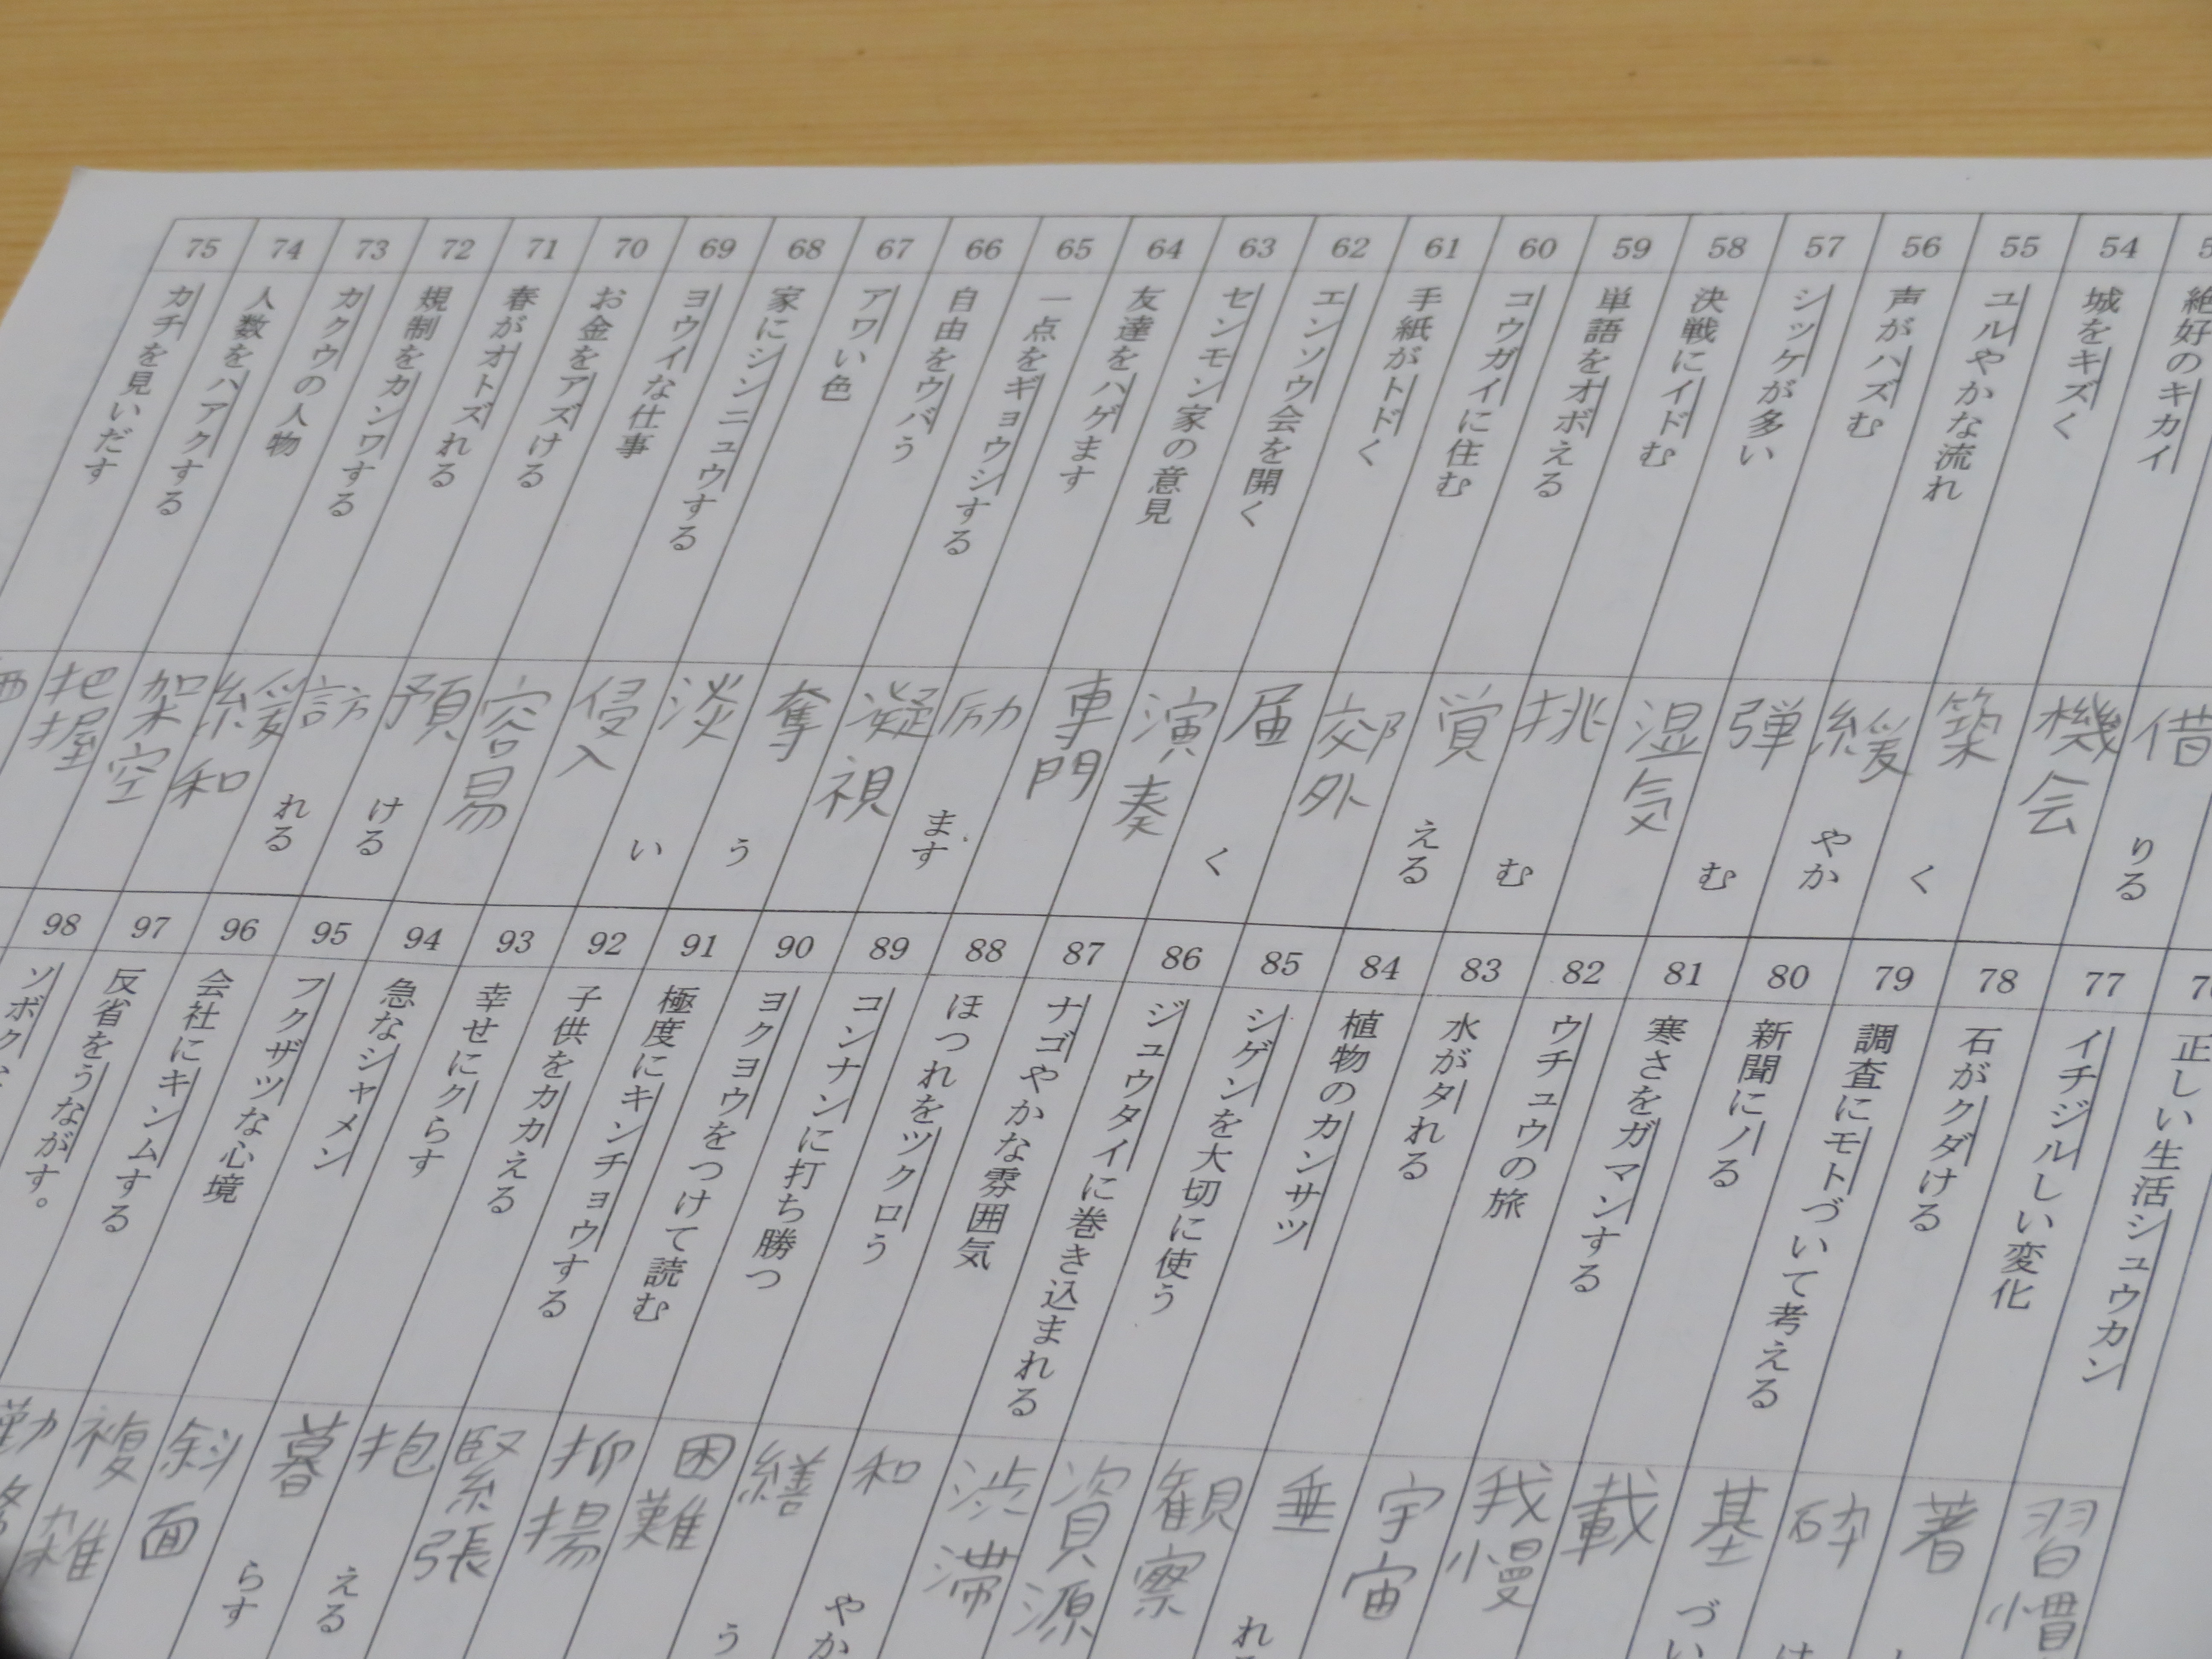 借りる
絶好のキカイ
機会
54
城をキズく
築く
55
ユルやかな流れ
緩やか
56
声がハズむ
弾む
57
シッケが多い
湿気
58
決戦にイドむ
挑む
59
単語をオボえる
覚える
60
コウガイに住む
郊外
61
手紙がトドく
届く
62
エンソウ会を開く
演奏
63
センモン家の意見
専門
64
友達をハゲます
励ます
65
一点をギョウシする
凝視
66
自由をウバう
奪う
67
アワい色
淡い
68
家にシンニュウする
侵入
69
ヨウイな仕事
容易
70
お金をアズける
預ける
71
春がオトズれる
訪れる
72
規制をカンワする
緩和
73
カクウの人物
架空
74
人数をハアクする
把握
75
カチを見いだす
正しい生活シュウカン
習慣
77
イチジルしい変化
著
78
石がクダける
砕
79
調査にモトづいて考える
基づい
80
新聞にノる
載
81
寒さをガマンする
我慢
82
ウチュウの旅
宇宙
83
水がタれる
垂れ
84
植物のカンサツ
観察
85
シゲンを大切に使う
資源
86
ジュウタイに巻き込まれる
渋滞
87
ナゴやかな雰囲気
和やか
88
ほつれをツクロう
繕う
89
コンナンに打ち勝つ
困難
90
ヨクヨウをつけて読む
抑揚
91
極度にキンチョウする
緊張
92
子供をカカえる
抱える
93
幸せにクらす
暮らす
94
急なシャメン
斜面
95
フクザツな心境
複雑
96
会社にキンムする
勤
97
反省をうながす。
98
ソボク